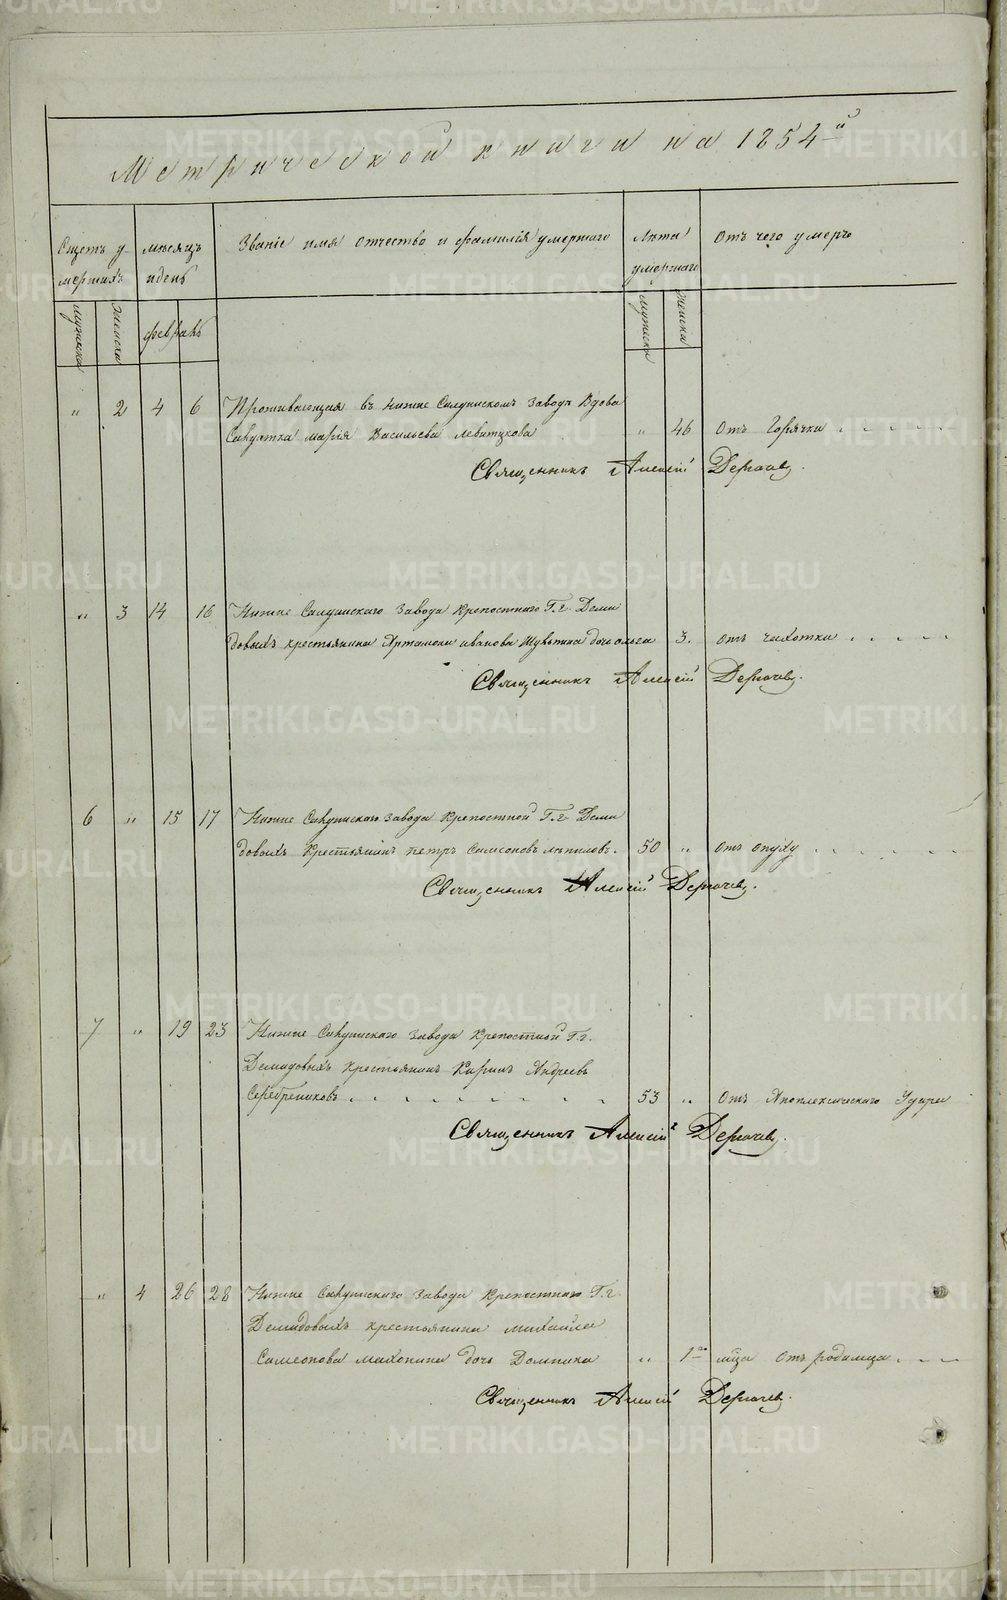 Метрической книги на 1854й
Счетъ у-
мершихъ
мѣсяцъ
и день
Званіе имя отчество и фамилія умершаго
Лѣта
умершаго
Отъ чего умеръ
мужеска
женска
февраль
мужеска
женска
" 2 4 6 Проживающая въ Нижне Салдинскомъ Заводѣ Вдова
Солдатка Марія Васильева " 46 Отъ Горячки
Священникъ Алексій Дерючев
" 3 14 16 Нижне Салдинскаго Завода Крепостнаго Г.г. Деми
довыхъ крестьянина Артамона иванова дочь ольга 3. отъ чахотки
Священникъ Алексій
6 " 15 17 Нижне Салдинскаго завода Крепостной Г.г. Деми
довыхъ Крестьянинъ петръ Самсоновъ 50 " отъ опуху
Священникъ Алексій
7 " 19 23 Нижне Салдинскаго завода Крепостной Г.г.
Демидовыхъ крестьянинъ Карпъ Андреевъ
Серебрениковъ 53 " Отъ Апоплексическаго Удара
Священникъ Алексій
" 4 26 28 Нижне Салдинскаго Завода Крепостнаго Г.г.
Демидовыхъ крестьянина михаила
Самсонова дочь Домника " 1го мца Отъ родимца
Священникъ Алексій
METRIKI.GASO-URAL.RU